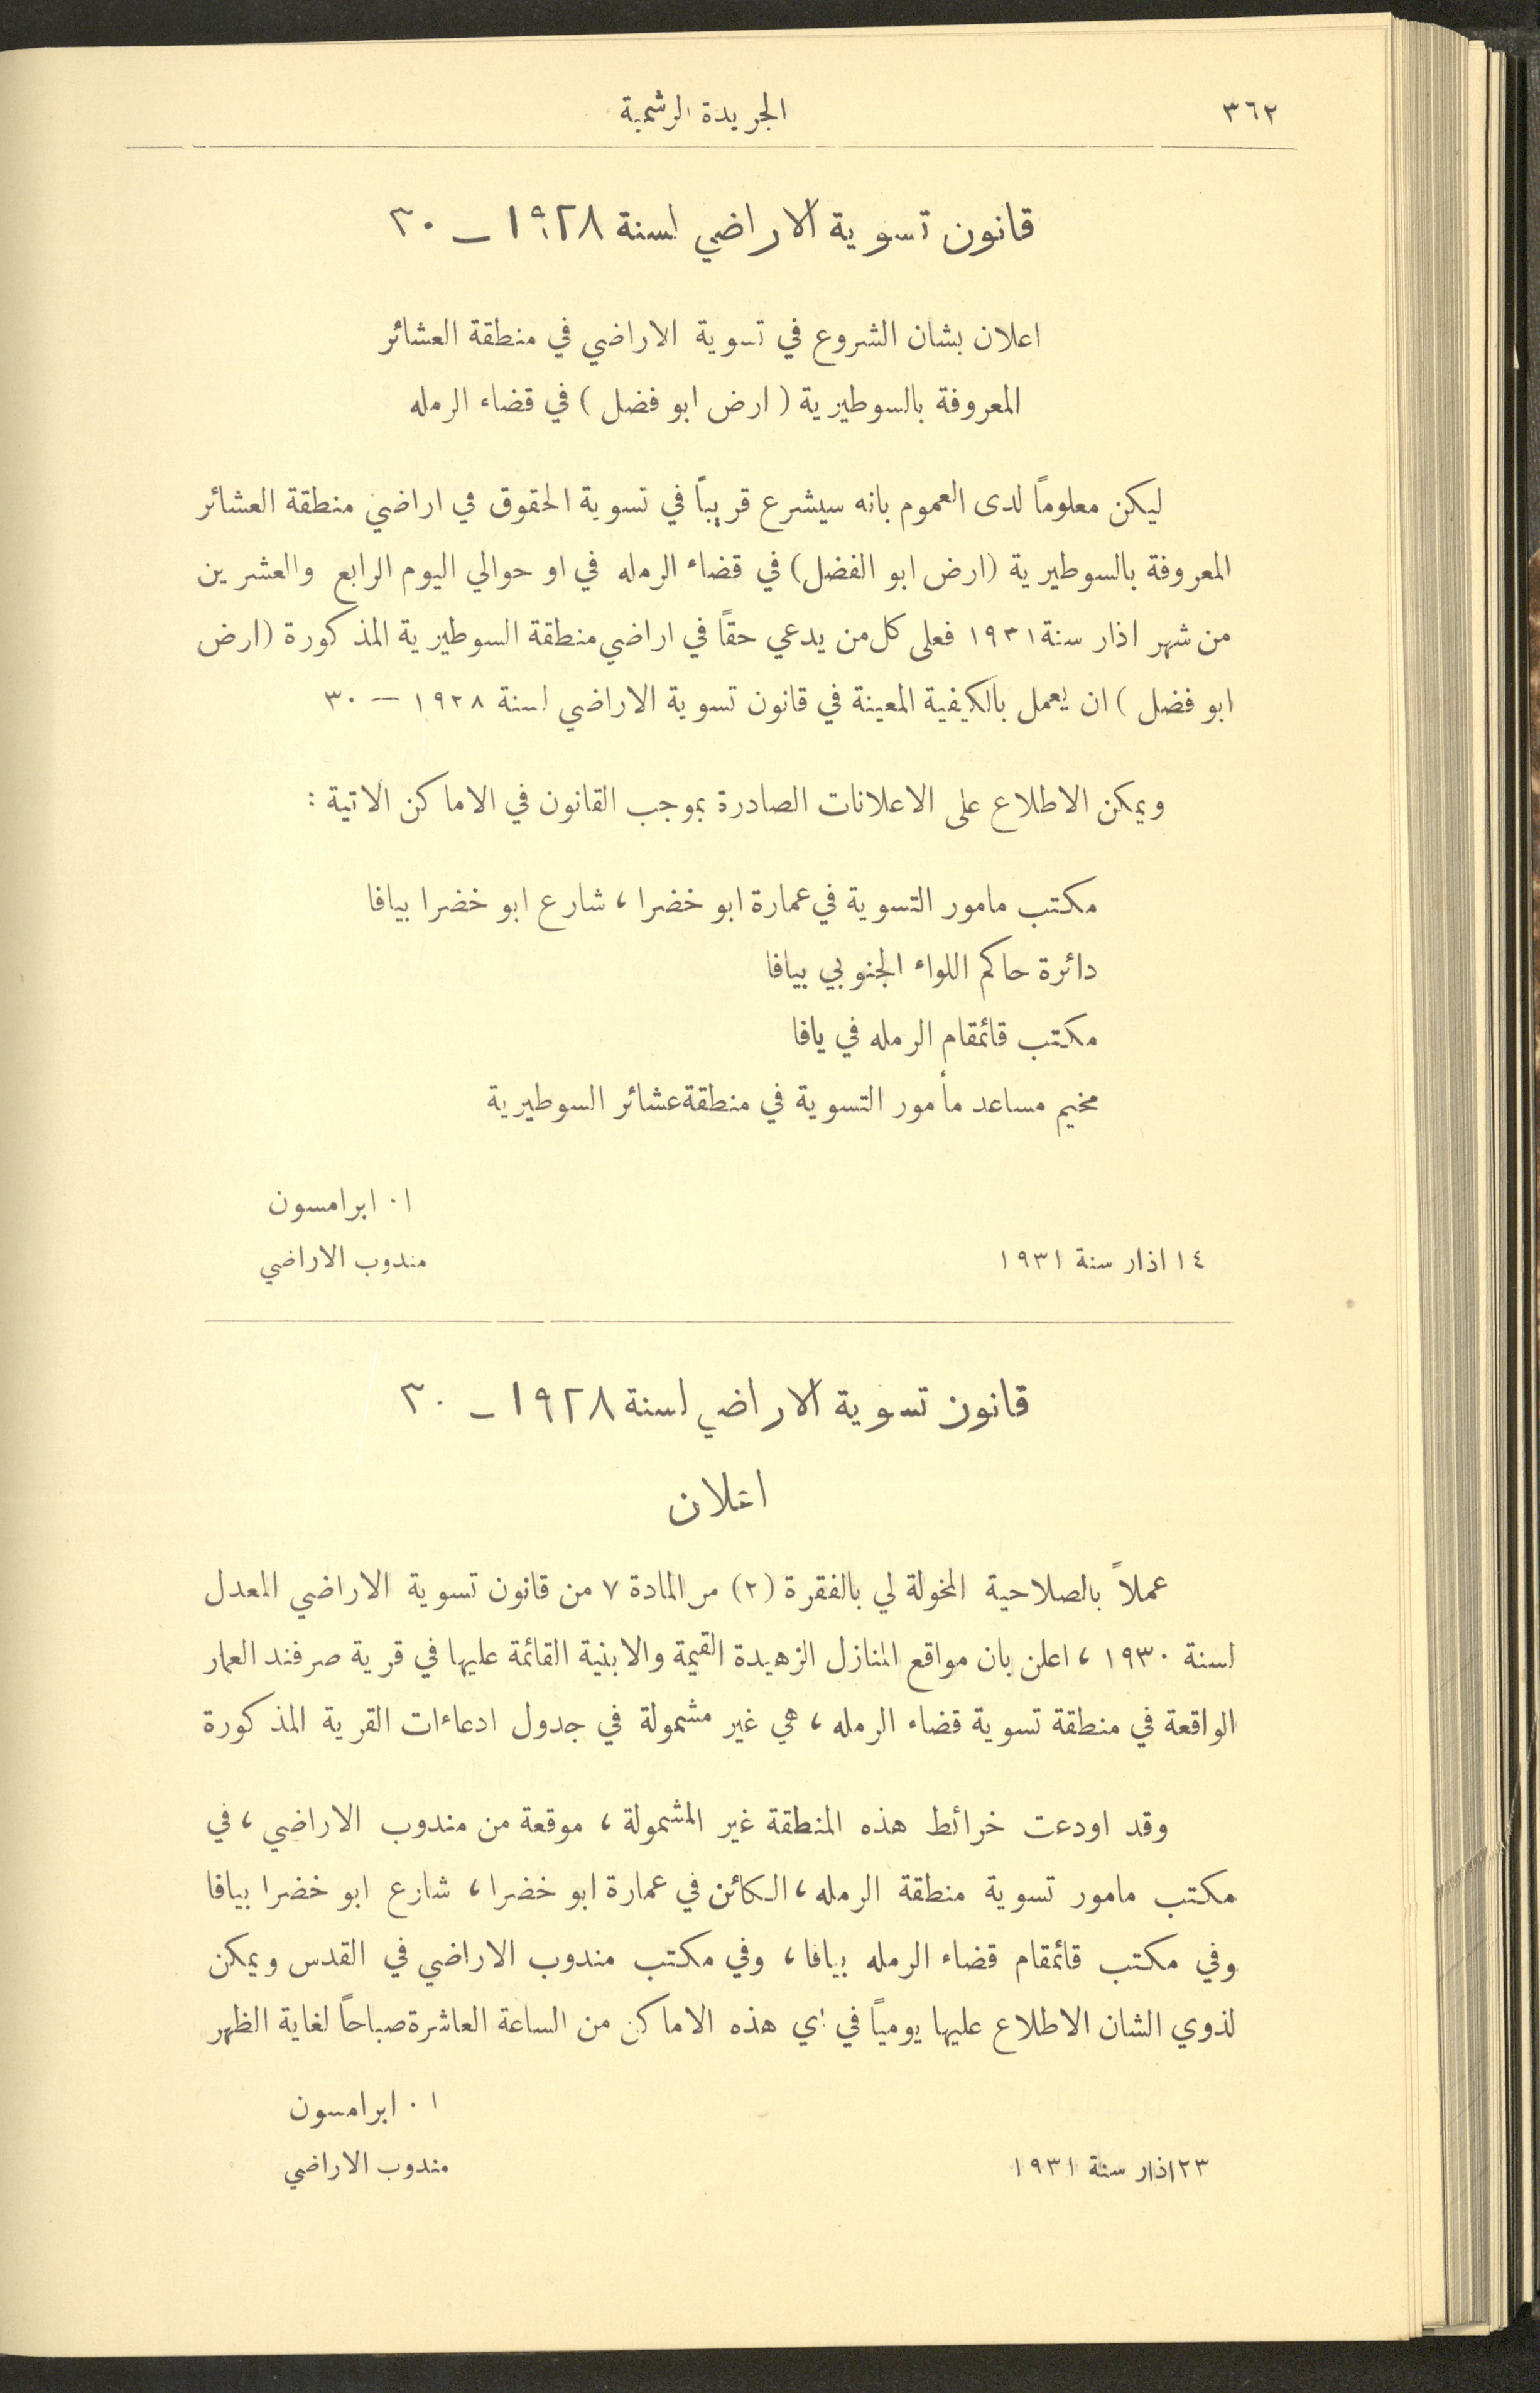 ٣٦٢
الجريدة الرسمية
قانون تسوية الاراضي لسنة ١٩٢٨ – ٣٠
اعلان بشان الشروع في تسوية الاراضي في منطقة العشائر
المعروفة بالسوطيرية ( ارض ابو فضل ) في قضاء الرمله
ليكن معلوماً لدى العموم بانه سيشرع قريباً في تسوية الحقوق في اراضي منطقة العشائر
المعروفة بالسوطيرية (ارض ابو الفضل) في قضاء الرمله في او حوالي اليوم الرابع والعشرين
من شهر اذار سنة ١٩٣١ فعلى كل من يدعي حقاً في اراضي منطقة السوطيرية المذكورة (ارض
ابو فضل ) ان يعمل بالكيفية المعينة في قانون تسوية الاراضي لسنة ١٩٢٨ – ٣٠
ويمكن الاطلاع على الاعلانات الصادرة بموجب القانون في الاماكن الاتية :
مكتب مامور التسوية في عمارة ابو خضرا ، شارع ابو خضرا بيافا
دائرة حاكم اللواء الجنوبي بيافا
مكتب قائمقام الرمله في يافا
مخيم مساعد مأمور التسوية في منطقة عشائر السوطيرية
ا ٠ ابرامسون
١٤ اذار سنة ١٩٣١
مندوب الاراضي
قانون تسوية الاراضي لسنة ١٩٢٨ – ٣٠
اعلان
عملاً بالصلاحية المخولة لي بالفقرة (٢) من المادة ٧ من قانون تسوية الاراضي المعدل
لسنة ١٩٣٠ ، اعلن بان مواقع المنازل الزهيدة القيمة والابنية القائمة عليها في قرية صرفند العمار
الواقعة في منطقة تسوية قضاء الرمله ، هي غير مشمولة في جدول ادعاءات القرية المذكورة
وقد اودعت خرائط هذه المنطقة غير المشمولة ، موقعة من مندوب الاراضي ، في
مكتب مامور تسوية منطقة الرمله ، الكائن في عمارة ابو خضرا ، شارع ابو خضرا بيافا
وفي مكتب قائمقام قضاء الرمله بيافا ، وفي مكتب مندوب الاراضي في القدس ويمكن
لذوي الشان الاطلاع عليها يومياً في اي هذه الاماكن من الساعة العاشرة صباحاً لغاية الظهر
ا ٠ ابرامسون
٢٣ اذار سنة ١٩٣١
مندوب الاراضي